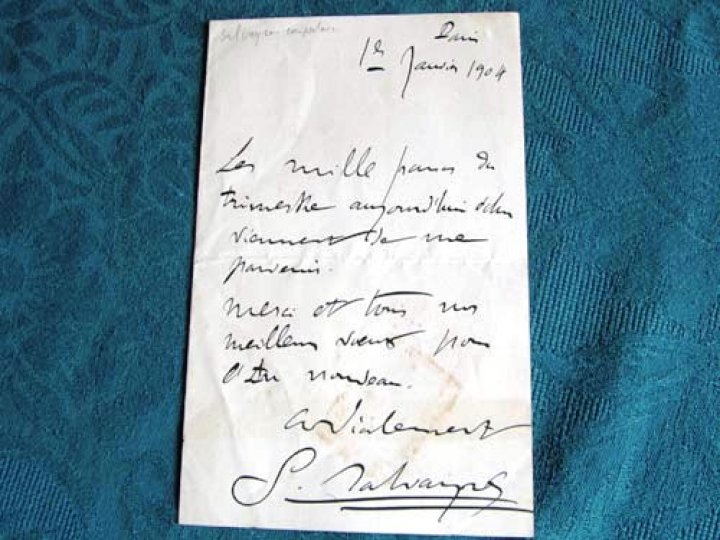 Salvayre compositeur
Paris
1er Janvier 1904
Les mille francs du
trimestre aujourd'hui échu
viennent de me
parvenir.
Merci et tous nos
meilleurs voeux pour
l'An nouveau.
Cordialement
G. Salvayre